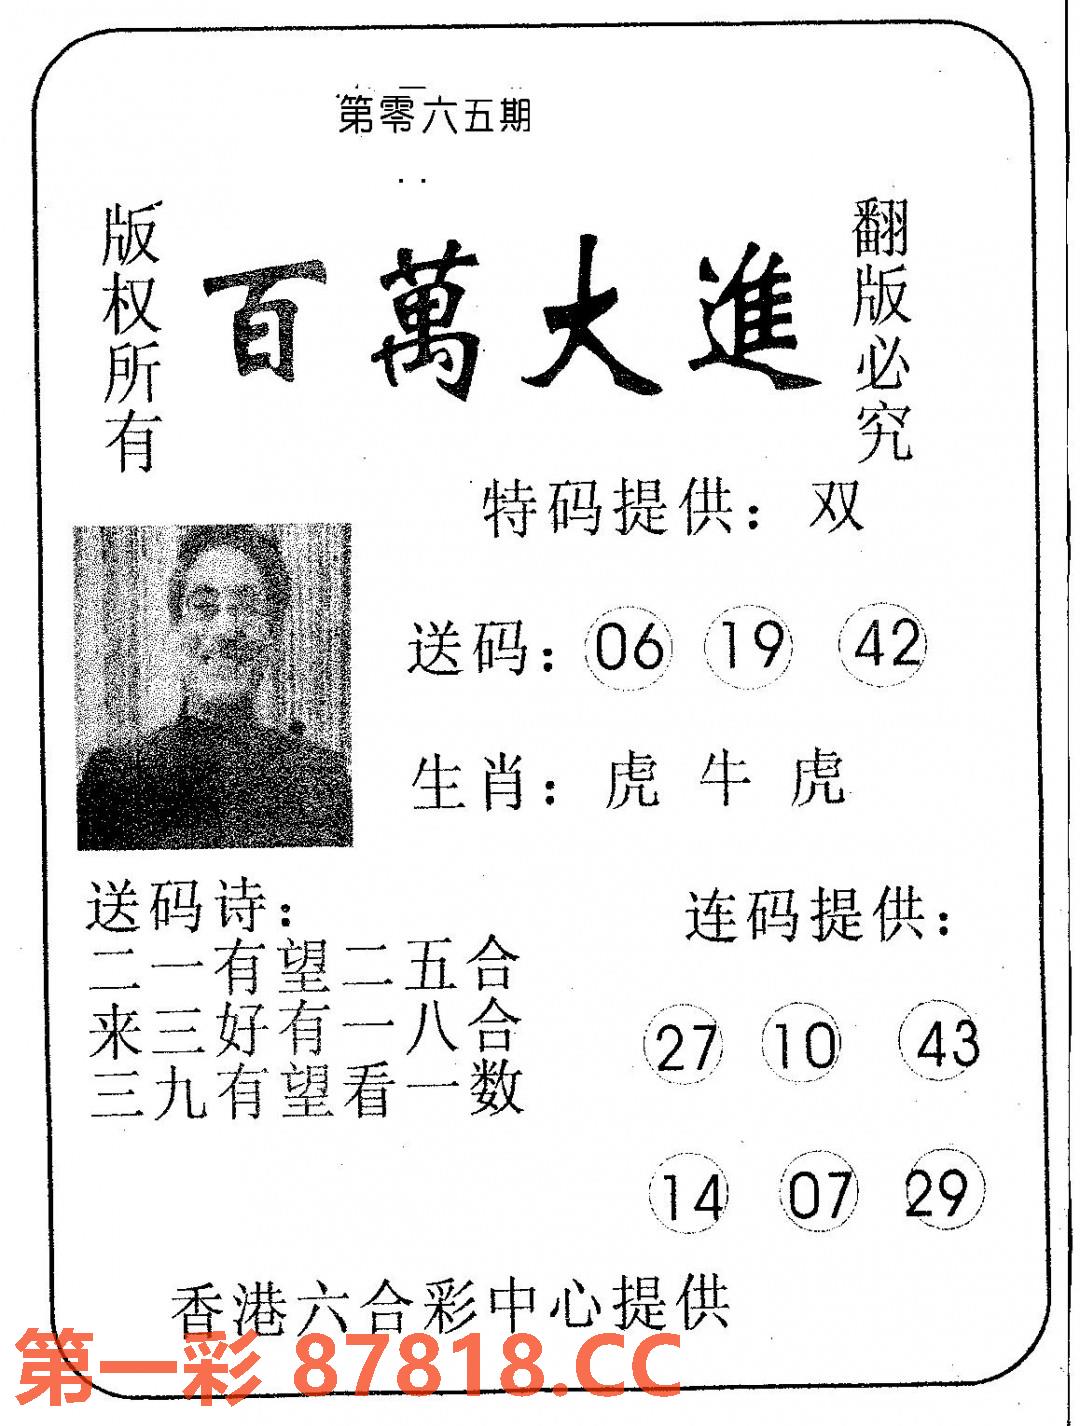 第零六五期
版权所有
百萬大進
翻版必究
特码提供：双
送码：06 19 42
生肖：虎 牛 虎
送码诗：
二一有望二五合
来三好有一八合
三九有望看一数
连码提供：
27 10 43
14 07 29
香港六合彩中心提供
第一彩 87818.CC